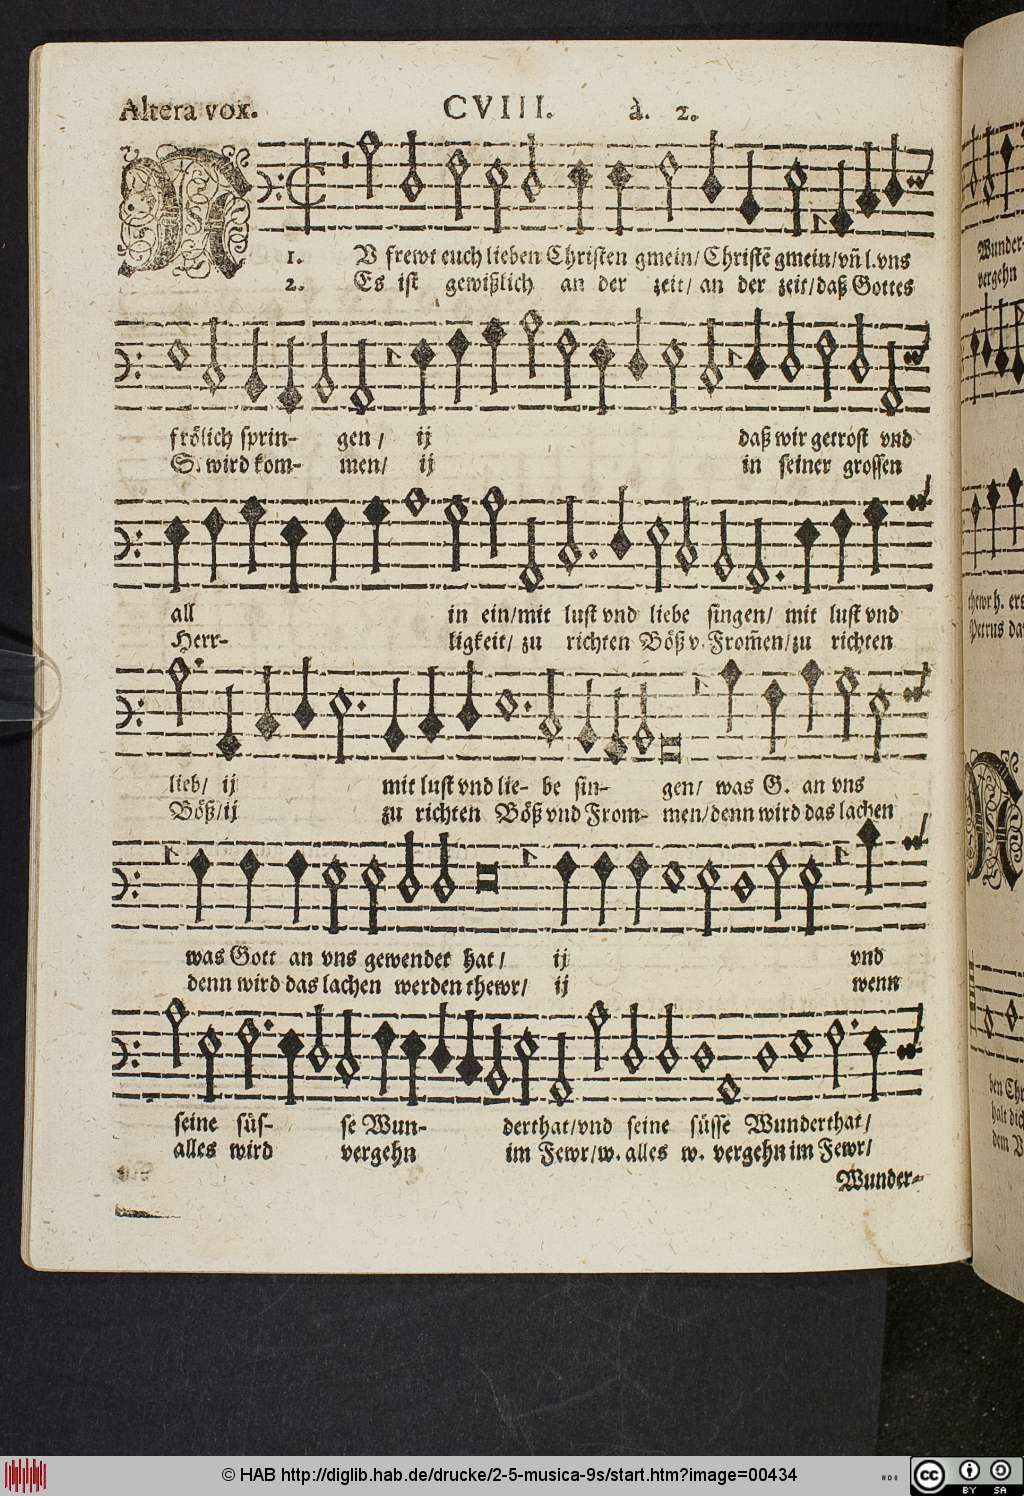 Altera vox. CVIII. à. 2.
1. NU frewt euch lieben Christen gmein/ Christẽ gmein/ vñ l. vns
2. Es ist gewißlich an der zeit/ an der zeit/ daß Gottes
frölich sprin- gen/ ij daß wir getrost vnd
S. wird kom- men/ ij in seiner grossen
all in ein/ mit lust vnd liebe singen/ mit lust vnd
Herr- ligkeit/ zu richten Böß v. From̃en/ zu richten
lieb/ ij mit lust vnd lie- be sin- gen/ was G. an vns
Böß/ ij zu richten Böß vnd From- men/ denn wird das lachen
was Gott an vns gewendet hat/ ij vnd
denn wird das lachen werden thewr/ ij wenn
seine süs- se Wun- derthat/ vnd seine süsse Wunderthat/
alles wird vergehn im Fewr/ w. alles w. vergehn im Fewr/
Wunder-
Wunder-
vergehn
thewr h. ers
Petrus da
den Chr
halt dich
dem V
© HAB http://diglib.hab.de/drucke/2-5-musica-9s/start.htm?image=00434
HAB
cc BY SA